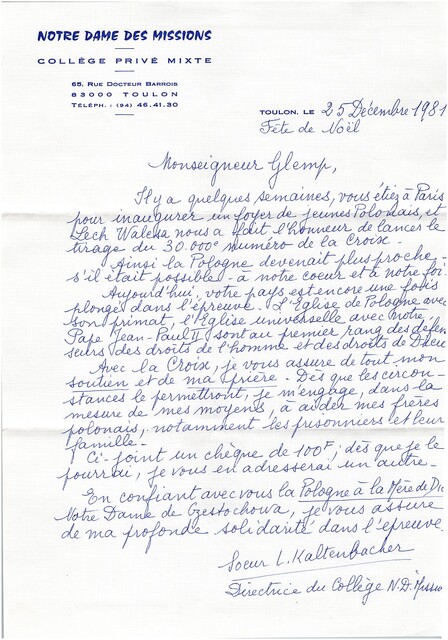 NOTRE DAME DES MISSIONS
COLLÈGE PRIVÉ MIXTE
65, Rue Docteur Barrois
83000 TOULON
Téléph. : (94) 46.41.30
TOULON, LE 25 Décembre 1981
Fête de Noël
Monseigneur Glemp,
Il y a quelques semaines, vous étiez à Paris
pour inaugurer un foyer de jeunes Polonais, et
Lech Walesa nous a fait l'honneur de lancer le
tirage du 30.000e numéro de la Croix.
Ainsi la Pologne devenait plus proche -
s'il était possible - à notre coeur et à notre foi.
Aujourd'hui, votre pays est encore une fois
plongé dans l'épreuve. L'Eglise de Pologne avec
son primat, l'Eglise universelle avec notre
Pape Jean-Paul II sont au premier rang des défen
seurs des droits de l'homme et des droits de Dieu.
Avec la Croix, je vous assure de tout mon
soutien et de ma prière. Dès que les circon-
stances le permettront, je m'engage, dans la
mesure de mes moyens, à aider mes frères
polonais, notamment les prisonniers et leur
famille.
Ci-joint un chèque de 100F ; dès que je le
pourrai, je vous en adresserai un autre.
En confiant avec vous la Pologne à la Mère de Di
Notre Dame de Czestochowa, je vous assure
de ma profonde solidarité dans l'épreuve.
Soeur L. Kaltenbacher
Directrice du Collège N.D. Missio